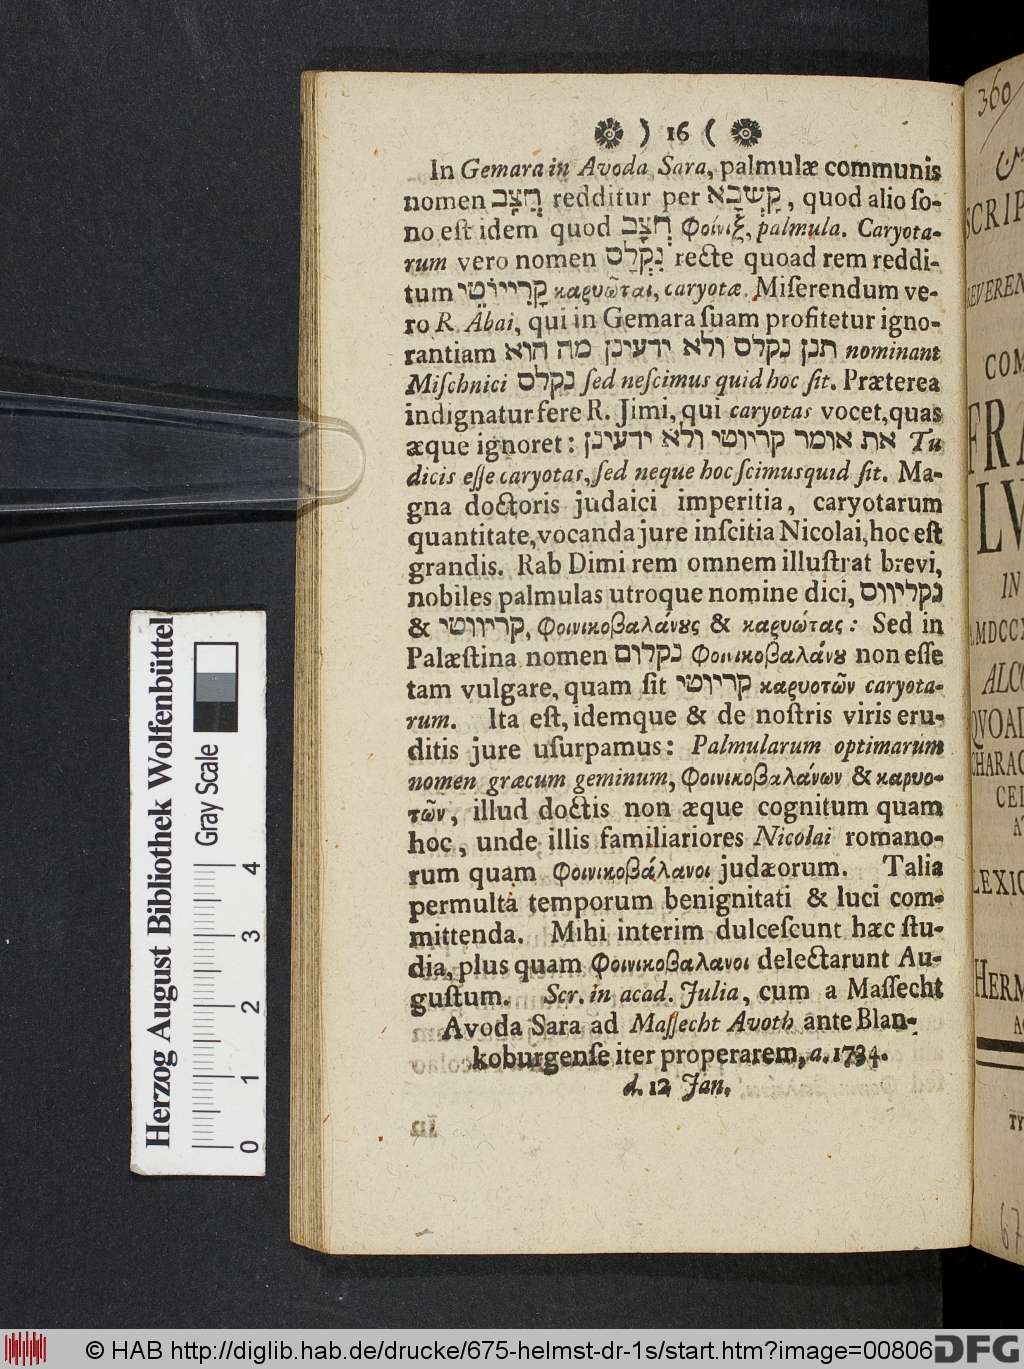 ) 16 (
In Gemara in Avoda Sara, palmulæ communis
nomen חֲצָב redditur per קַשְׁבָא, quod alio ſo-
no eſt idem quod חֲצָב Φοίνιξ, palmula. Caryota-
rum vero nomen נְקָלַס recte quoad rem reddi-
tum קָרְייוֹטֵי καρυῶται, caryotæ. Miſerendum ve-
ro R. Abai, qui in Gemara ſuam profitetur igno-
rantiam תנן נקלס ולא ידעינן מה הוא nominant
Miſchnici נקלס ſed neſcimus quid hoc ſit. Præterea
indignatur fere R. Jimi, qui caryotas vocet, quas
æque ignoret: את אומר קריוטי ולא ידעינן Tu
dicis eſſe caryotas, ſed neque hoc ſcimus quid ſit. Ma-
gna doctoris judaici imperitia, caryotarum
quantitate, vocanda jure inſcitia Nicolai, hoc eſt
grandis. Rab Dimi rem omnem illuſtrat brevi,
nobiles palmulas utroque nomine dici, נקליווס
& קריווטי, Φοινικοβαλάνȣς & καρυώτας: Sed in
Palæſtina nomen נקלוס Φοινικοβαλάνȣ non eſſe
tam vulgare, quam ſit קריוטי καρυοτῶν caryota-
rum. Ita eſt, idemque & de noſtris viris eru-
ditis jure uſurpamus: Palmularum optimarum
nomen græcum geminum, Φοινικοβαλάνων & καρυο-
τῶν, illud doctis non æque cognitum quam
hoc, unde illis familiariores Nicolai romano-
rum quam Φοινικοβάλανοι judæorum. Talia
permulta temporum benignitati & luci com-
mittenda. Mihi interim dulceſcunt hæc ſtu-
dia, plus quam Φοινικοβαλανοι delectarunt Au-
guſtum. Scr. in acad. Julia, cum a Maſſecht
Avoda Sara ad Maſſecht Avoth ante Blan-
koburgenſe iter properarem, a. 1734.
d. 12 Jan.
360
SCRIP
REVEREN
COM
FRA
LV
IN
MDCCX
ALCO
QVOAD
CHARAC
CEL
AT
LEXIC
HERM
TY
67
Herzog August Bibliothek Wolfenbüttel
Gray Scale
0 1 2 3 4
© HAB http://diglib.hab.de/drucke/675-helmst-dr-1s/start.htm?image=00806
DFG